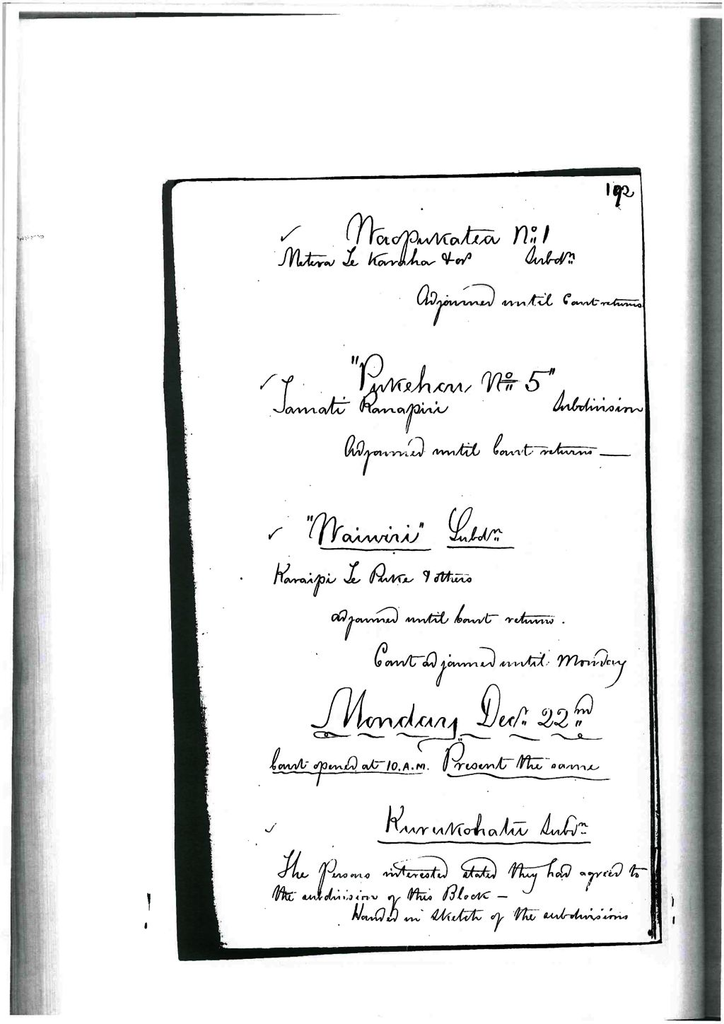 192
Waopukatea No 1
Metera Te Karaha & ors Subdn
Adjourned until Court returns
"Pukehou No 5"
Tamati Ranapiri Subdivision
Adjourned until Court returns —
"Waiwiri" Subdn
Karaipi Te Puke & others
adjourned until Court returns.
Court adjourned until Monday
Monday Decr 22nd
Court opened at 10.A.M. Present the same
Kurukohatu Subdn
The Persons interested stated they had agreed to
the subdivision of this Block —
Handed in sketch of the subdivisions